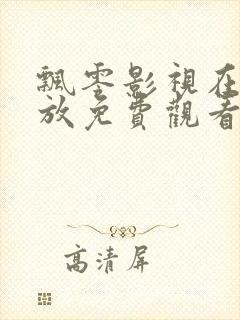 飄零影視在
放免費觀看
高清屏